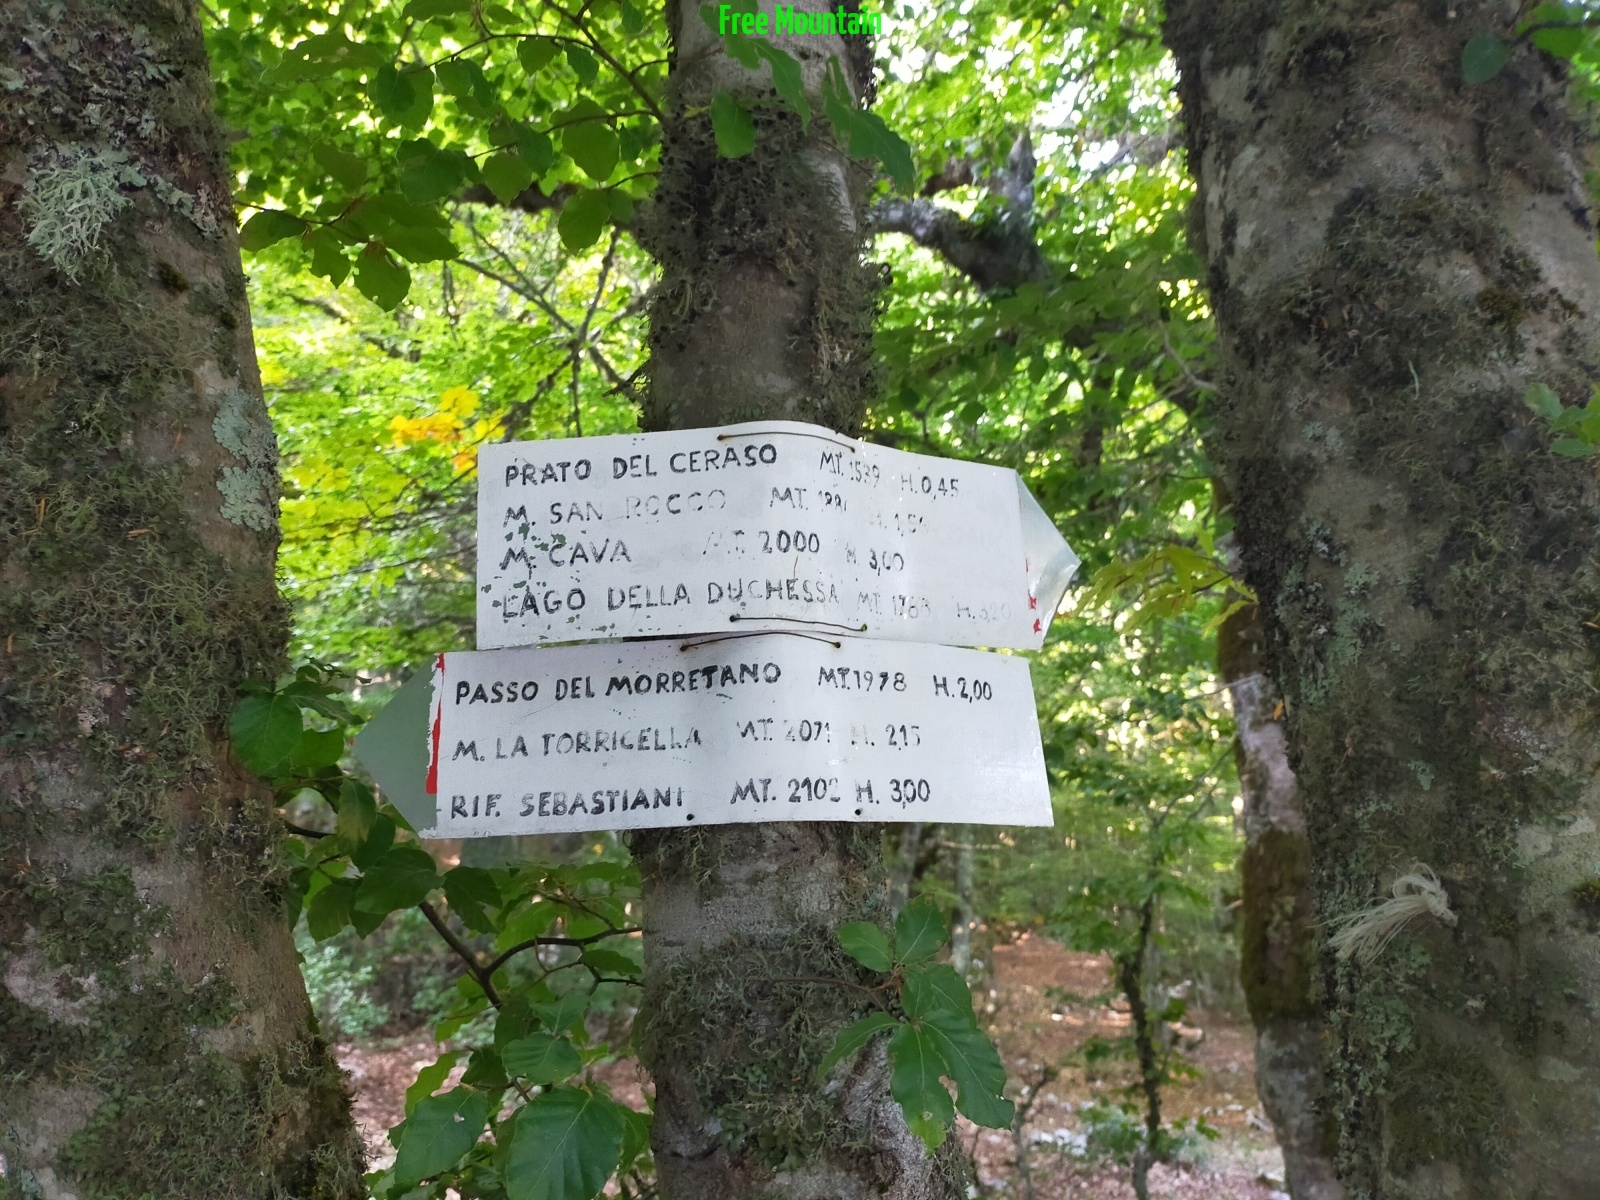 Free Mountain
PRATO DEL CERASO MT. 1539 H. 0,45
M. SAN ROCCO MT.
M. CAVA MT. 2000 H. 3,00
LAGO DELLA DUCHESSA MT. H.
PASSO DEL MORRETANO MT. 1978 H. 2,00
M. LA TORRICELLA MT. 2071 H. 2,15
RIF. SEBASTIANI MT. 2102 H. 3,00